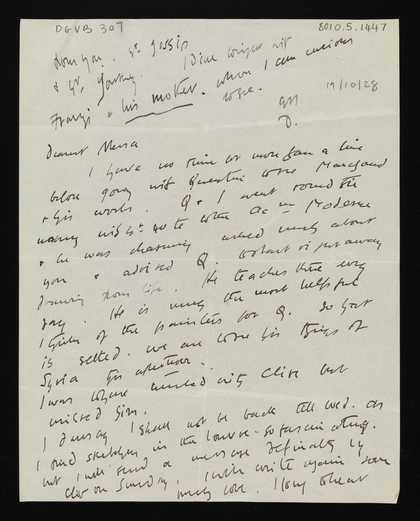 DGVB 307
8010.5.1447
from you. & yr gossip
& yr journey. I dine tonight with
Frangi & his mother. whom I am curious
to see.
19/10/28
D.
Dearest Nessa
I have no time for more than a line
before going with Quentin to see Marchand
& his works. Q & I went round this
morning with to the Ac Moderne
& he was charming asked much about
you & advised Q. to start right away
drawing from life. He teaches there every
day. He is much the most helpful
I think of the painters for Q. So that
is settled. We are to see his things of
Syria this afternoon.
I was to have lunched with Clive but
missed him.
I daresay I shall not be back till Wed. as
I find sketching in the Louvre so fascinating.
but I will send a message definitely by
Clive on Sunday. I will write again soon
much love.